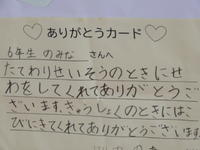 ありがとうカード
6年生 のみな さんへ
たてわりせいそうのときにせ
わをしてくれてありがとうご
ざいます。きゅうしょくのときには、
びにきてくれてありがとうございます